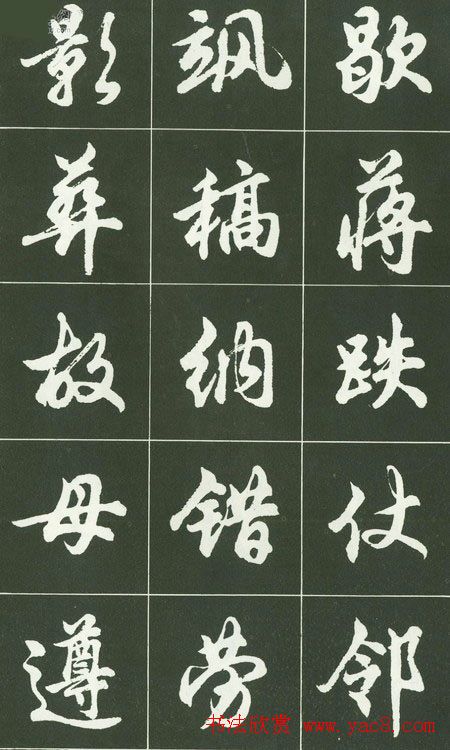 歇蒋跌仗邻
飒稿纳错劳
影葬故母遵
书法欣赏 www.yac8.com